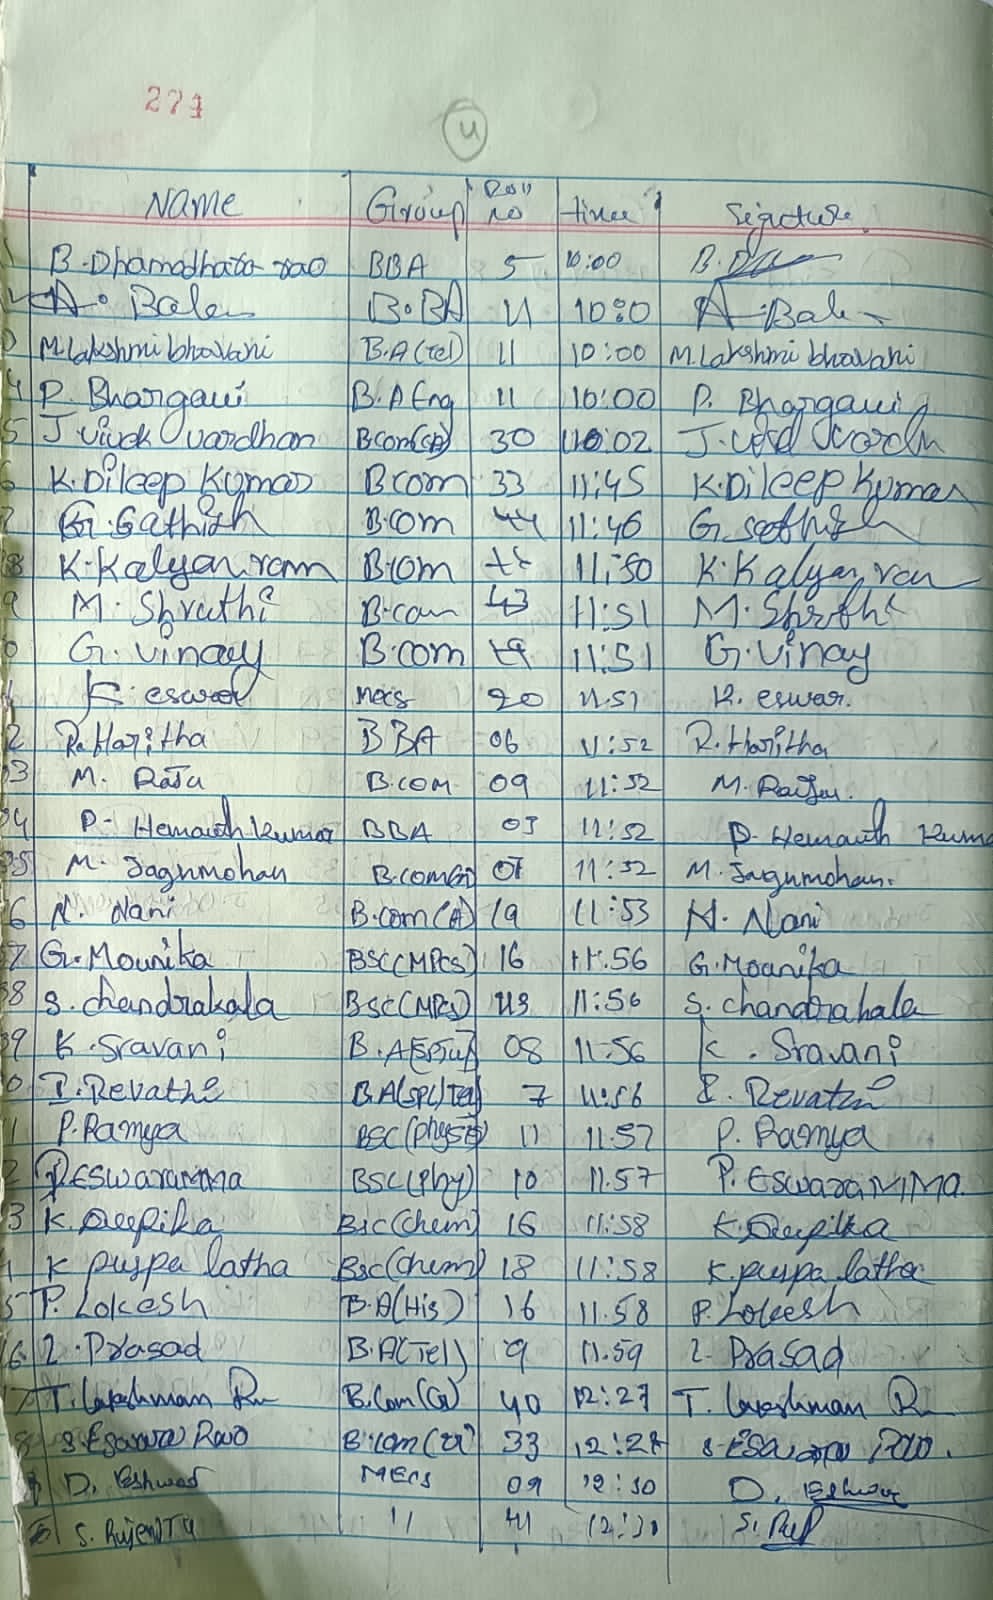 271
4
Name Group Roll no time Signature
B. Dhamodhara rao BBA 5 10:00 B.
A. Bala B.BA 11 10:0 A. Bala
M. Lakshmi bhavani B.A(Tel) 11 10:00 M. Lakshmi bhavani
P. Bhargavi B.A Eng 11 10:00 P. Bhargavi
5 J. vivek vardhan B.com(CA) 30 10:02 J. vardh
6 K. Dileep Kumar B.com 33 11:45 K. Dileep Kumar
7 G. Sathish B.com 44 11:46 G. Sathish
8 K. Kalyan ram B.com 11:50 K. Kalyan ram
9 M. Shruthi B.com 43 11:51 M. Shruthi
0 G. Vinay B.com 11:51 G. Vinay
K. eswar MECS 20 11.51 K. eswar.
2 R. Haritha BBA 06 11:52 R. Haritha
3 M. Raju B.com 09 11:52 M. Raju.
4 P. Hemanth Kumar BBA 03 11:52 P. Hemanth Kuma
5 M. Jagnmohan B.com 07 11:52 M. Jagnmohan.
6 N. Nani B.com(A) 19 11:53 N. Nani
7 G. Mounika BSC(MPCs) 16 11.56 G. Mounika
8 S. chandrakala BSC(MPCs) 11:56 S. chandrakala
9 K. Sravani B.A 08 11:56 K. Sravani
0 P. Revathi B.A(SPL)Tel 7 11:56 P. Revathi
1 P. Ramya BSC(physi) 11 11.57 P. Ramya
2 P. ESwaramma BSC(Phy) 10 11.57 P. ESwaraMMa.
3 K. Deepika BSC(Chem) 16 11:58 K. Deepika
K puspa latha BSC(Chem) 18 11:58 K. puspa latha
5 P. Lokesh B.A(His) 16 11.58 P. Lokesh
6 L. Prasad B.A(Tel) 9 11.59 L. Prasad
7 T. Lakshman R B.Com(G) 40 12:27 T. Lakshman R
8 S. Eswara Rao B.com 33 12:28 S. Eswara Rao.
D. Eshwar MECS 09 12:30 D. Eshwar
S. " 41 12:30 S.